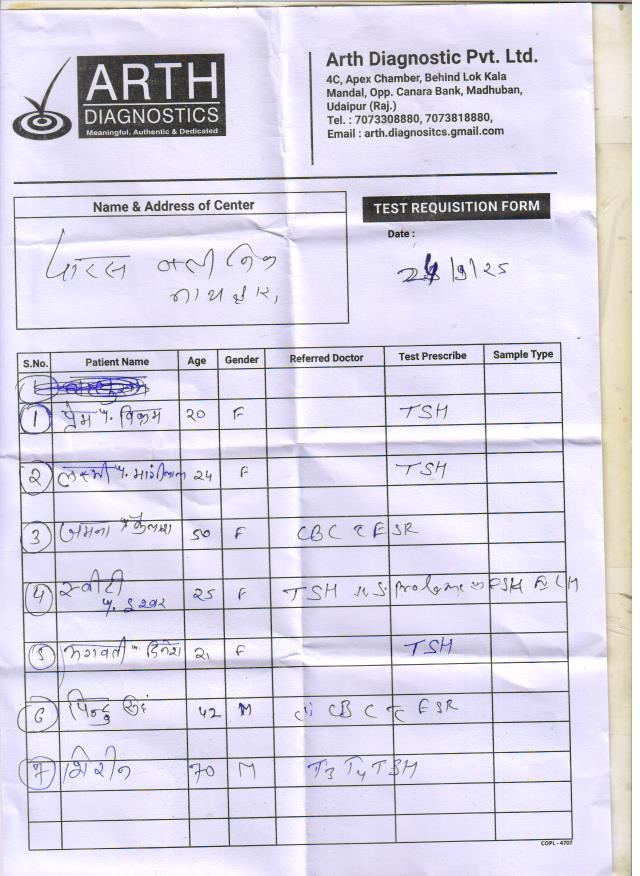 ARTH
DIAGNOSTICS
Meaningful, Authentic & Dedicated
Arth Diagnostic Pvt. Ltd.
4C, Apex Chamber, Behind Lok Kala
Mandal, Opp. Canara Bank, Madhuban,
Udaipur (Raj.)
Tel. : 7073308880, 7073818880,
Email : arth.diagnositcs.gmail.com
Name & Address of Center
पारस क्लीनिक
TEST REQUISITION FORM
Date :
24/9/25
S.No. Patient Name Age Gender Referred Doctor Test Prescribe Sample Type
1 प्रेम प. विक्रम 20 F TSH
2 लक्ष्मी प. मांगीलाल 24 F TSH
3 जमना कैलाश 50 F CBC ESR
4 स्वीटी 25 F TSH FSH LH
प. ईश्वर
5 भगवती प. दिनेश 21 F TSH
6 पिन्टु 42 M CBC ESR
7 70 M T3 T4 TSH
COPL - 4707